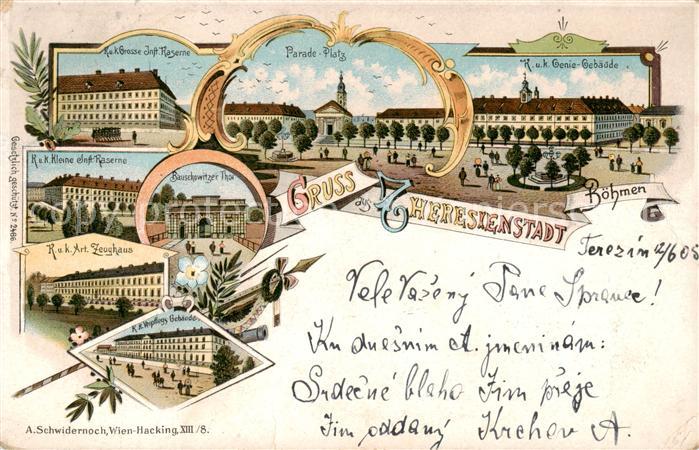 K.u.k. Grosse Inft. Kaserne
Parade-Platz
K.u.k. Genie-Gebäude
K.u.k. Kleine Inft. Kaserne
Bauschowitzer Thor
K.u.k. Art. Zeughaus
K.k. Verpflegs Gebäude
Gesetzlich geschützt No 2486
GRUSS aus THERESIENSTADT
Böhmen
Terezín 12/6 05
Vele Vážený Pane Správce!
Ku dnešním ct. jmeninám:
Srdečné blaho Jim přeje
Jim oddaný Krchov A.
A. Schwidernoch, Wien-Hacking, XIII/8.